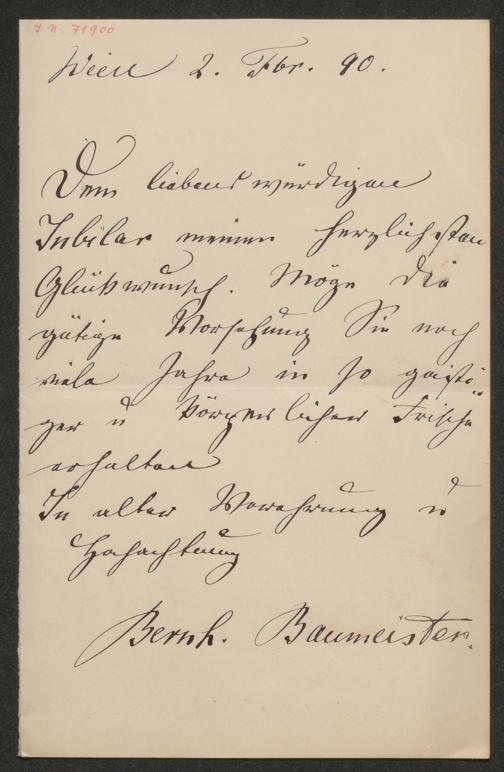 I. N. 71900
Wien 2. Fbr. 90.
Dem liebenswürdigen
Jubilar meinen herzlichsten
Glückwunsch. Möge die
gütige Vorsehung Sie noch
viele Jahre in so geisti-
ger u körperlicher Frische
erhalten
In alter Verehrung u
Hochachtung
Bernh. Baumeister.